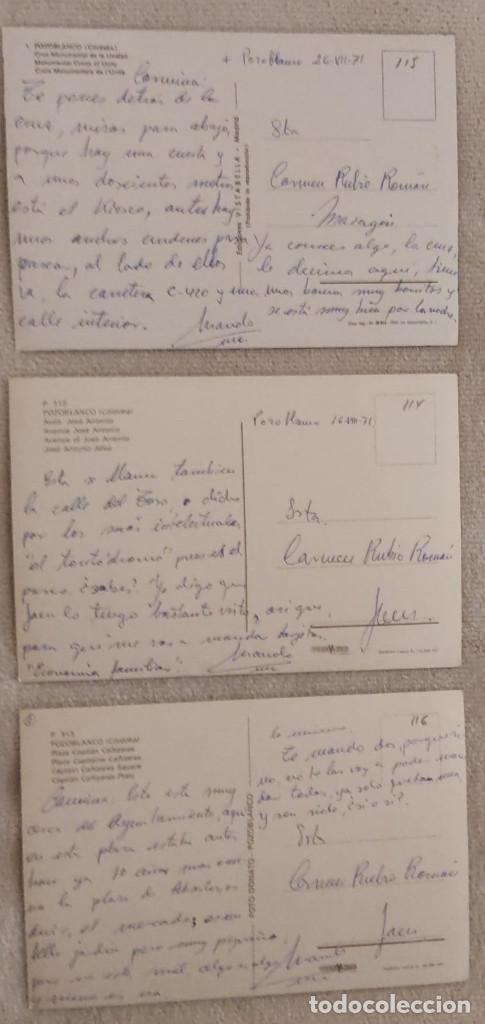 1. POZOBLANCO (Córdoba)
Cruz Monumental de la Unidad
+ Pozoblanco 26-VII-71
115
Carmina:
Te pones detrás de la
cruz, miras para abajo
porque hay una cuesta y
a unos doscientos metros
está el Kiosco, antes hay
unos anchos andenes para
pasear, al lado de ellos
va, la carretera C-420 y una
calle interior.
Ediciones VISTABELLA - Madrid
(Prohibida la reproducción)
Sta
Carmen Rubio Román
Mazagón
Ya conoces algo, la cruz,
le decimos aquí, tiene
unos bancos muy bonitos y
se está muy bien por la noche.
P 315
POZOBLANCO (Córdoba)
Avda. José Antonio
Avenue José Antonio
Avenue of José Antonio
José Antonio Allee
Pozoblanco 26-VII-71
114
Esta se llama también
la calle del Toro, o dicho
por los más intelectuales
"el tontódromo" pues es el
paseo ¿sabes? Yo digo que
Jaén lo tengo bastante visto, así que
para qué me vas a mandar
"Economía familiar".
Srta.
Carmen Rubio Román
Jaén.
P 313
POZOBLANCO (Córdoba)
Plaza Capitán Cañizares
Place Capitaine Cañizares
Capitán Cañizares Square
Capitán Cañizares Platz
116
Carmina: Esta está muy
cerca del Ayuntamiento, aquí
en esta plaza estaba antes
hace ya 10 años más o me
nos la plaza de Abastos, es
decir, el mercado, es un
bello jardín pero muy pequeño
FOTO DONATO - POZOBLANCO
lo mismo.
Te mando dos, porque si
no, no te las voy a poder man
dar todas, ya solo quedan
Srta
Carmen Rubio Román
Jaén
todocoleccion.net